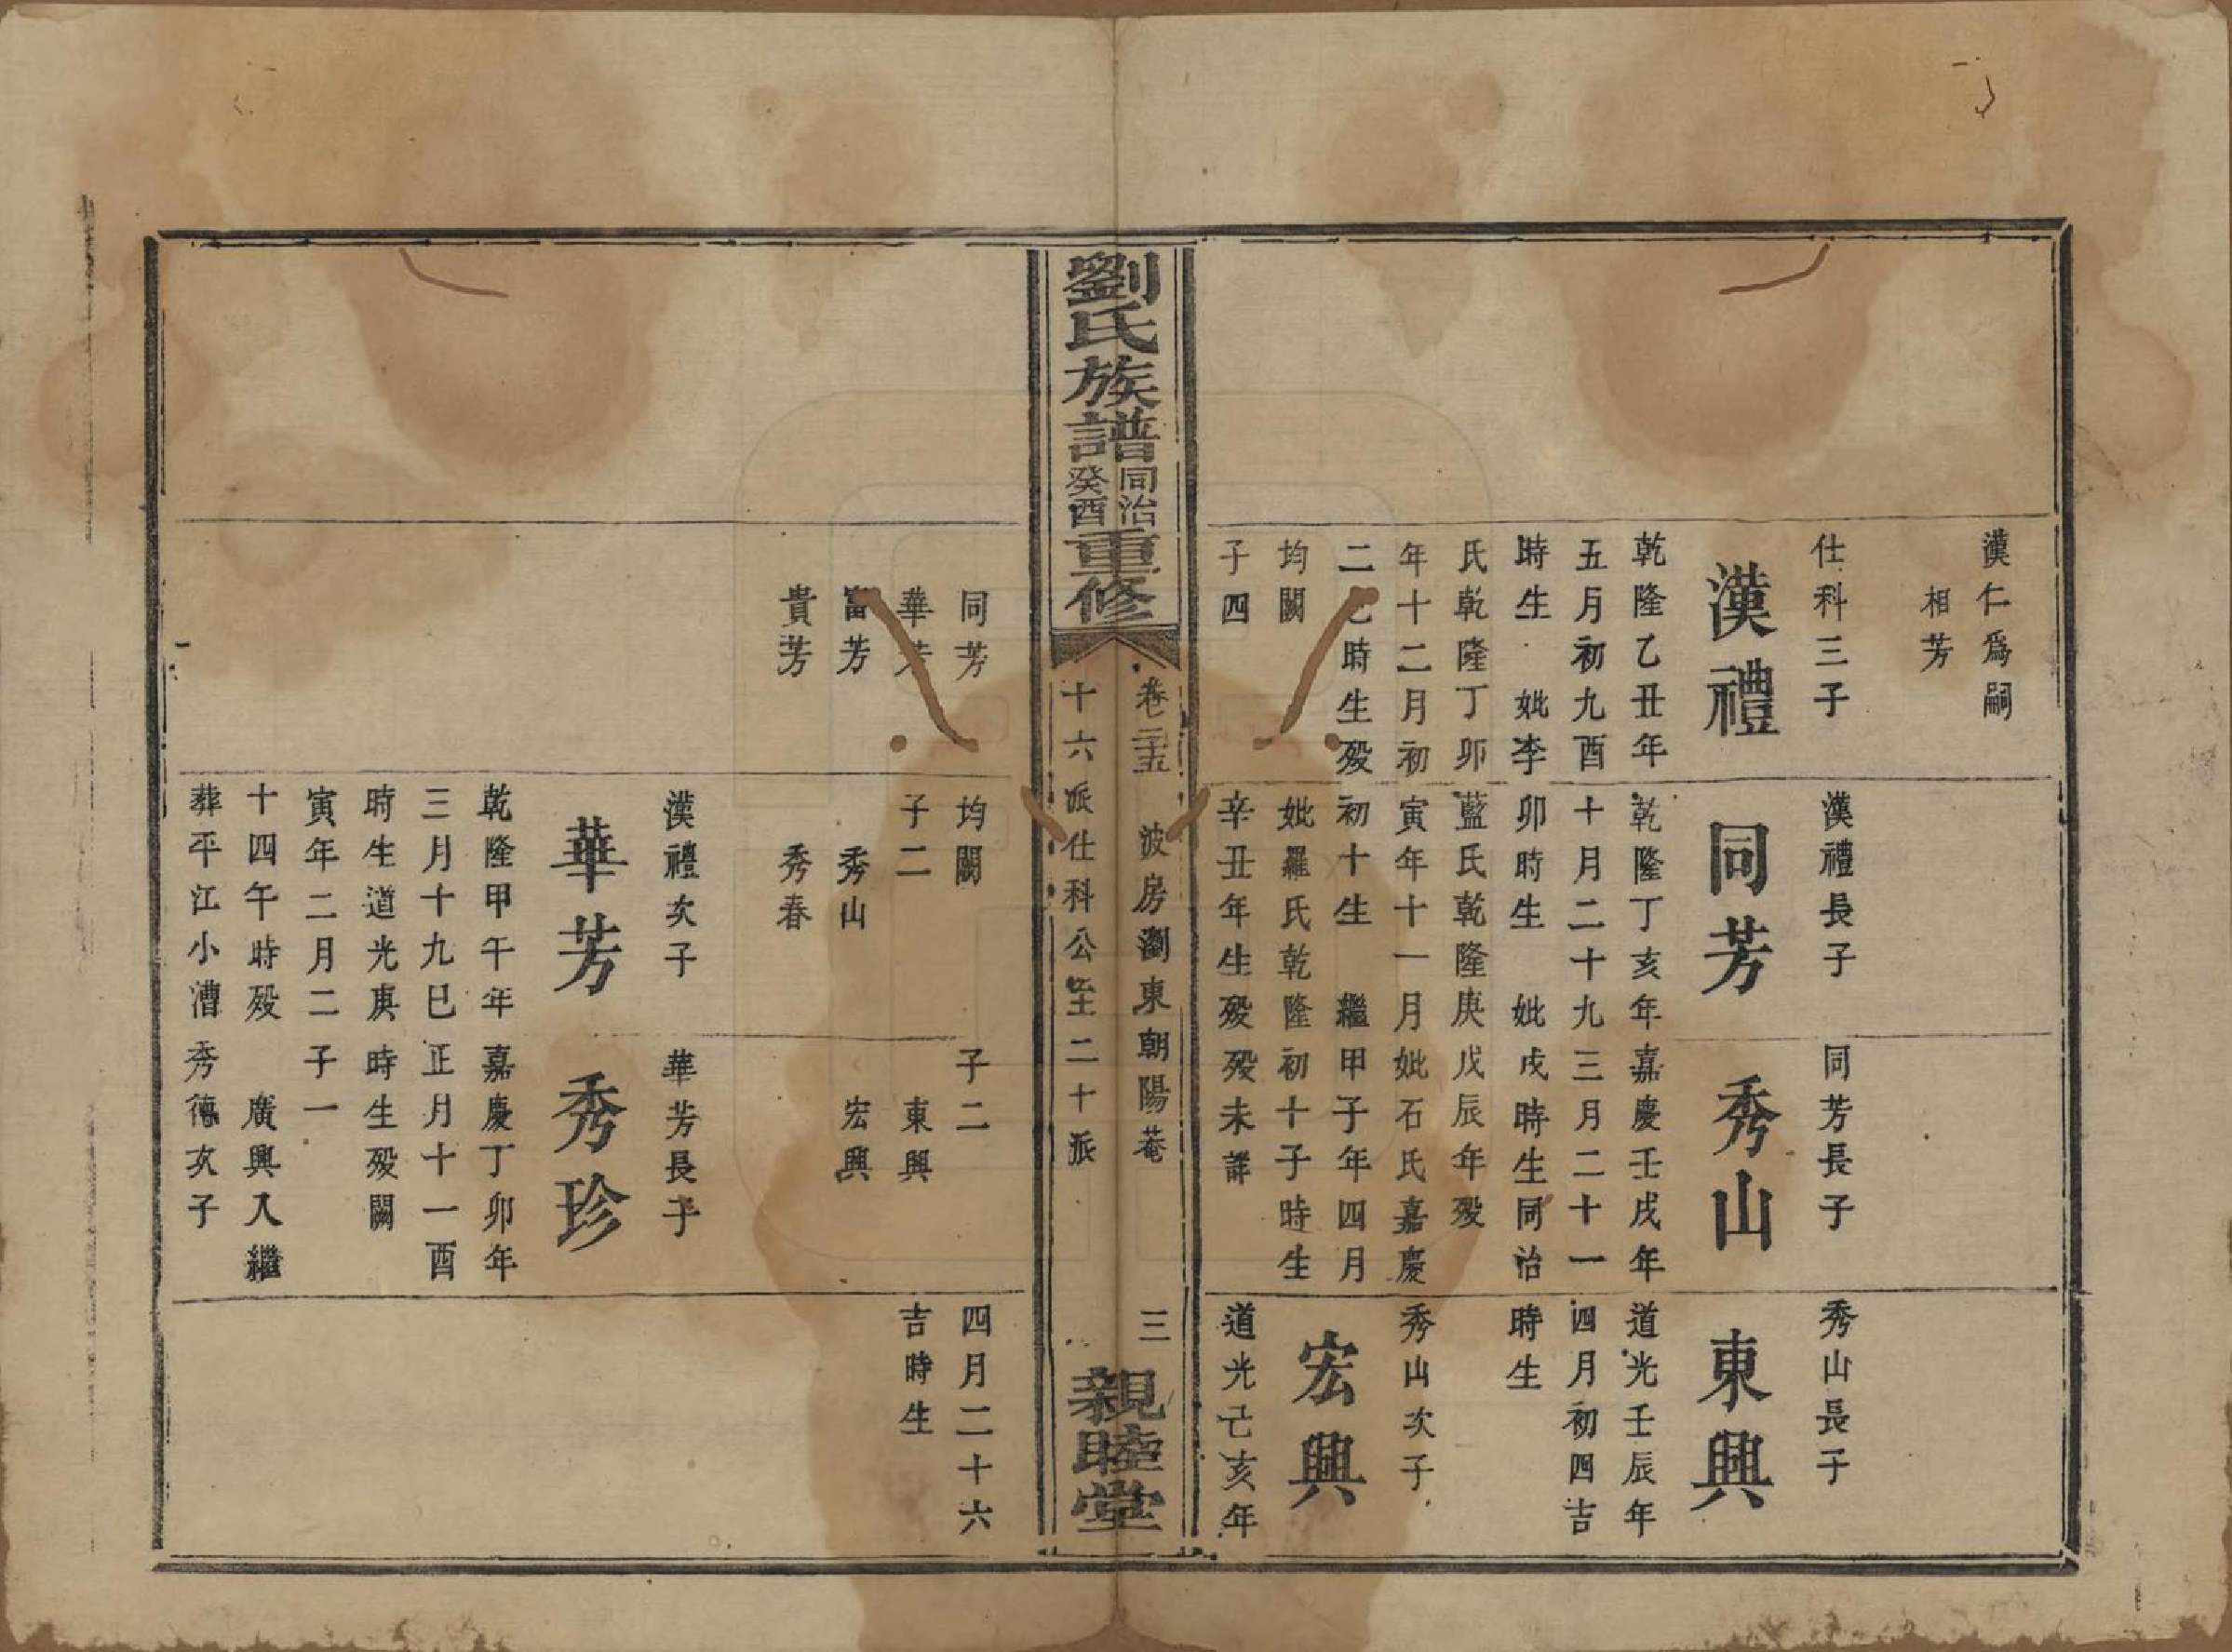 漢仁爲嗣
相芳
仕科三子
漢禮
乾隆乙丑年
五月初九酉
時生 妣李
氏乾隆丁卯
年十二月初
二巳時生歿
均闕
子四
同芳
華芳
富芳
貴芳
漢禮長子
同芳
乾隆丁亥年
十月二十九
卯時生 妣
藍氏乾隆庚
寅年十一月
初十生 繼
妣羅氏乾隆
辛丑年生歿
均闕
子二
秀山
秀春
漢禮次子
華芳
乾隆甲午年
三月十九巳
時生道光庚
寅年二月二
十四午時歿
葬平江小漕
同芳長子
秀山
嘉慶壬戌年
三月二十一
戌時生同治
戊辰年歿
妣石氏嘉慶
甲子年四月
初十子時生
歿未詳
子二
東興
宏興
華芳長子
秀珍
嘉慶丁卯年
正月十一酉
時生歿闕
子一
廣興入繼
秀德次子
秀山長子
東興
道光壬辰年
四月初四吉
時生
秀山次子
宏興
道光己亥年
四月二十六
吉時生
劉氏族譜
同治
癸酉
重修
卷二十五 波房瀏東朝陽菴 三
十六派仕科公至二十派
親睦堂